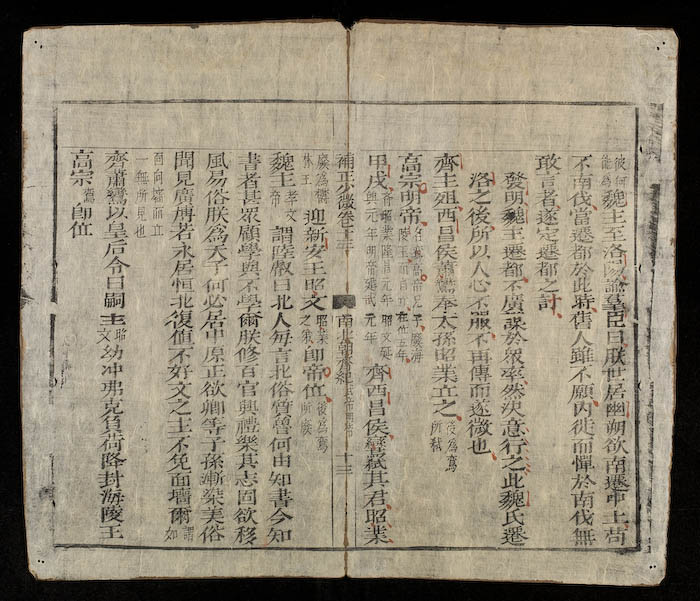 彼何能為魏主至洛陽諭羣臣曰朕世居幽朔欲南遷中土苟
不南伐當遷都於此時舊人雖不願內徙而憚於南伐無
敢言者遂定遷都之計
發明魏主遷都不廣謀於眾率然決意行之此魏氏遷
洛之後所以人心不服不再傳而遂微也
齊主殂西昌侯蕭鸞奉太孫昭業立之後為鸞所弒
高宗明帝名鸞高帝兄子廢海陵王而自立在位五年
甲戌齊昭業隆昌元年昭文延興元年明帝建武元年齊西昌侯蕭鸞弒其君昭業
補正少微卷十三 南北朝齊紀 十三
廢為欝林王迎新安王昭文昭業之弟即帝位後為鸞所弒
魏主孝文帝謂陸叡曰北人每言北俗質魯何由知書今知
書者甚眾顧學與不學爾朕修百官興禮樂其志固欲移
風易俗朕為天子何必居中原正欲卿等子孫漸染美俗
聞見廣博若永居恒北復值不好文之主不免面墻爾謂如
面向墻而立一無所見也
齊蕭鸞以皇后令曰嗣主昭文幼冲弗克負荷降封海陵王
高宗鸞即位